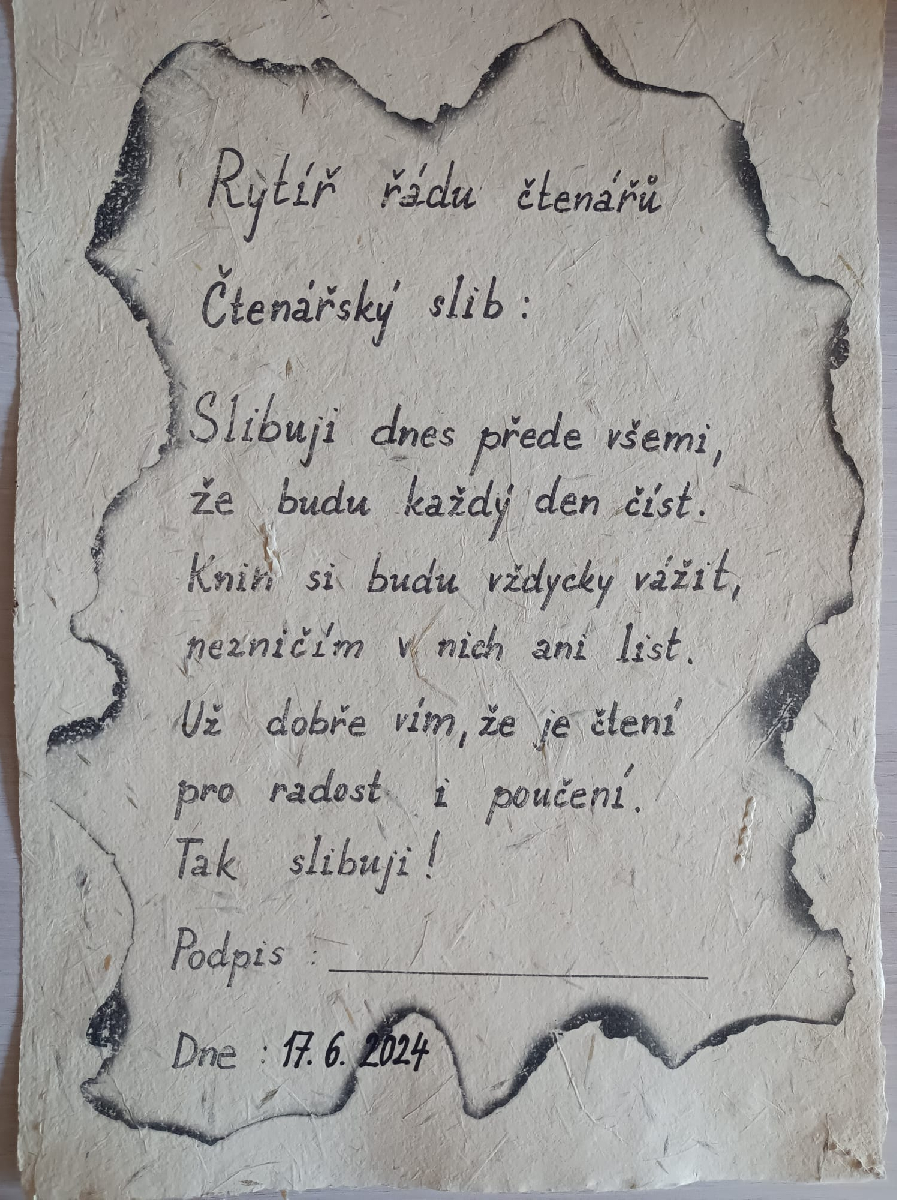 Rytíř řádu čtenářů
Čtenářský slib:
Slibuji dnes přede všemi,
že budu každý den číst.
Knih si budu vždycky vážit,
nezničím v nich ani list.
Už dobře vím, že je čtení
pro radost i poučení.
Tak slibuji!
Podpis :
Dne : 17. 6. 2024